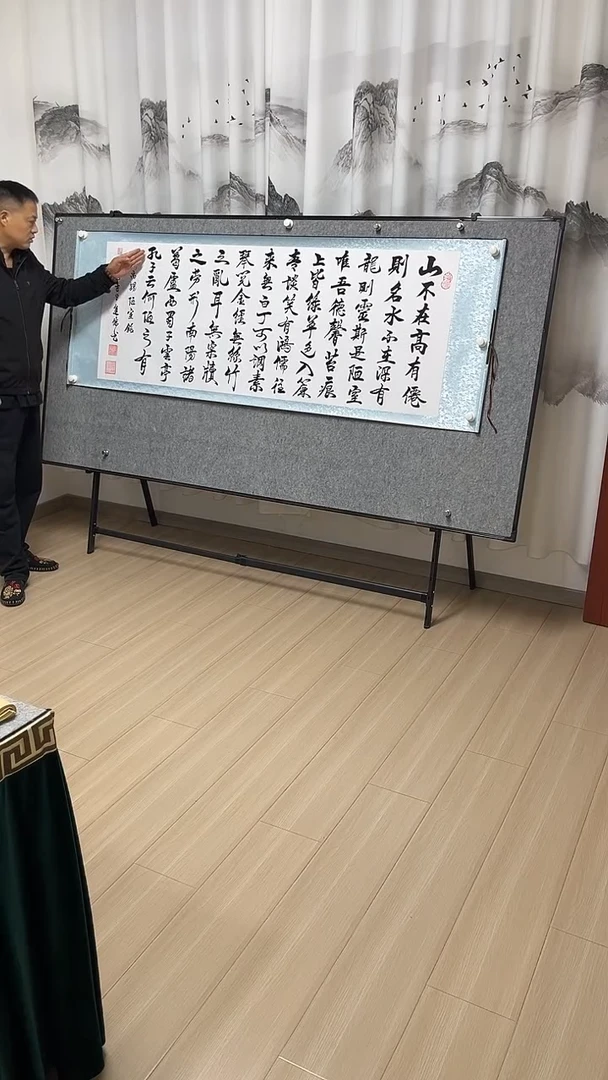 山不在高有僊
則名水不在深有
龍則靈斯是陋室
唯吾德馨苔痕
上皆綠草色入簾
青談笑有鴻儒往
來無白丁可以調素
琴閱金經無絲竹
之亂耳無案牘
之勞形南陽諸
葛廬西蜀子雲亭
孔子云何陋之有
陋室銘